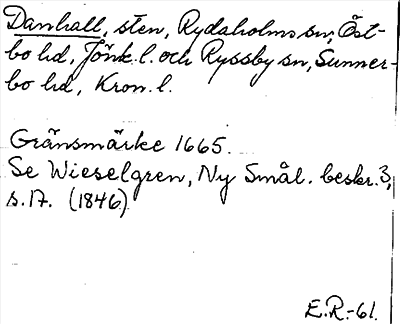 Danhall, sten, Rydaholms sn, Öst-
bo hd, Jönk. l. och Ryssby sn, Sunner-
bo hd, Kron. l.
Gränsmärke 1665.
Se Wieselgren, Ny Smål. beskr. 3,
s. 17. (1846)
E.R.-61.